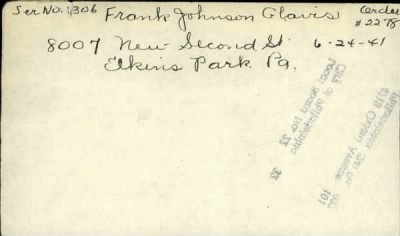 Ser No. 1306 Frank Johnson Glavis Order
# 2278
8007 New Second St. 6-24-41
Elkins Park Pa.
Local Board No. 22 32
City of Philadelphia
4718 Ogden Avenue
Philadelphia, 
101